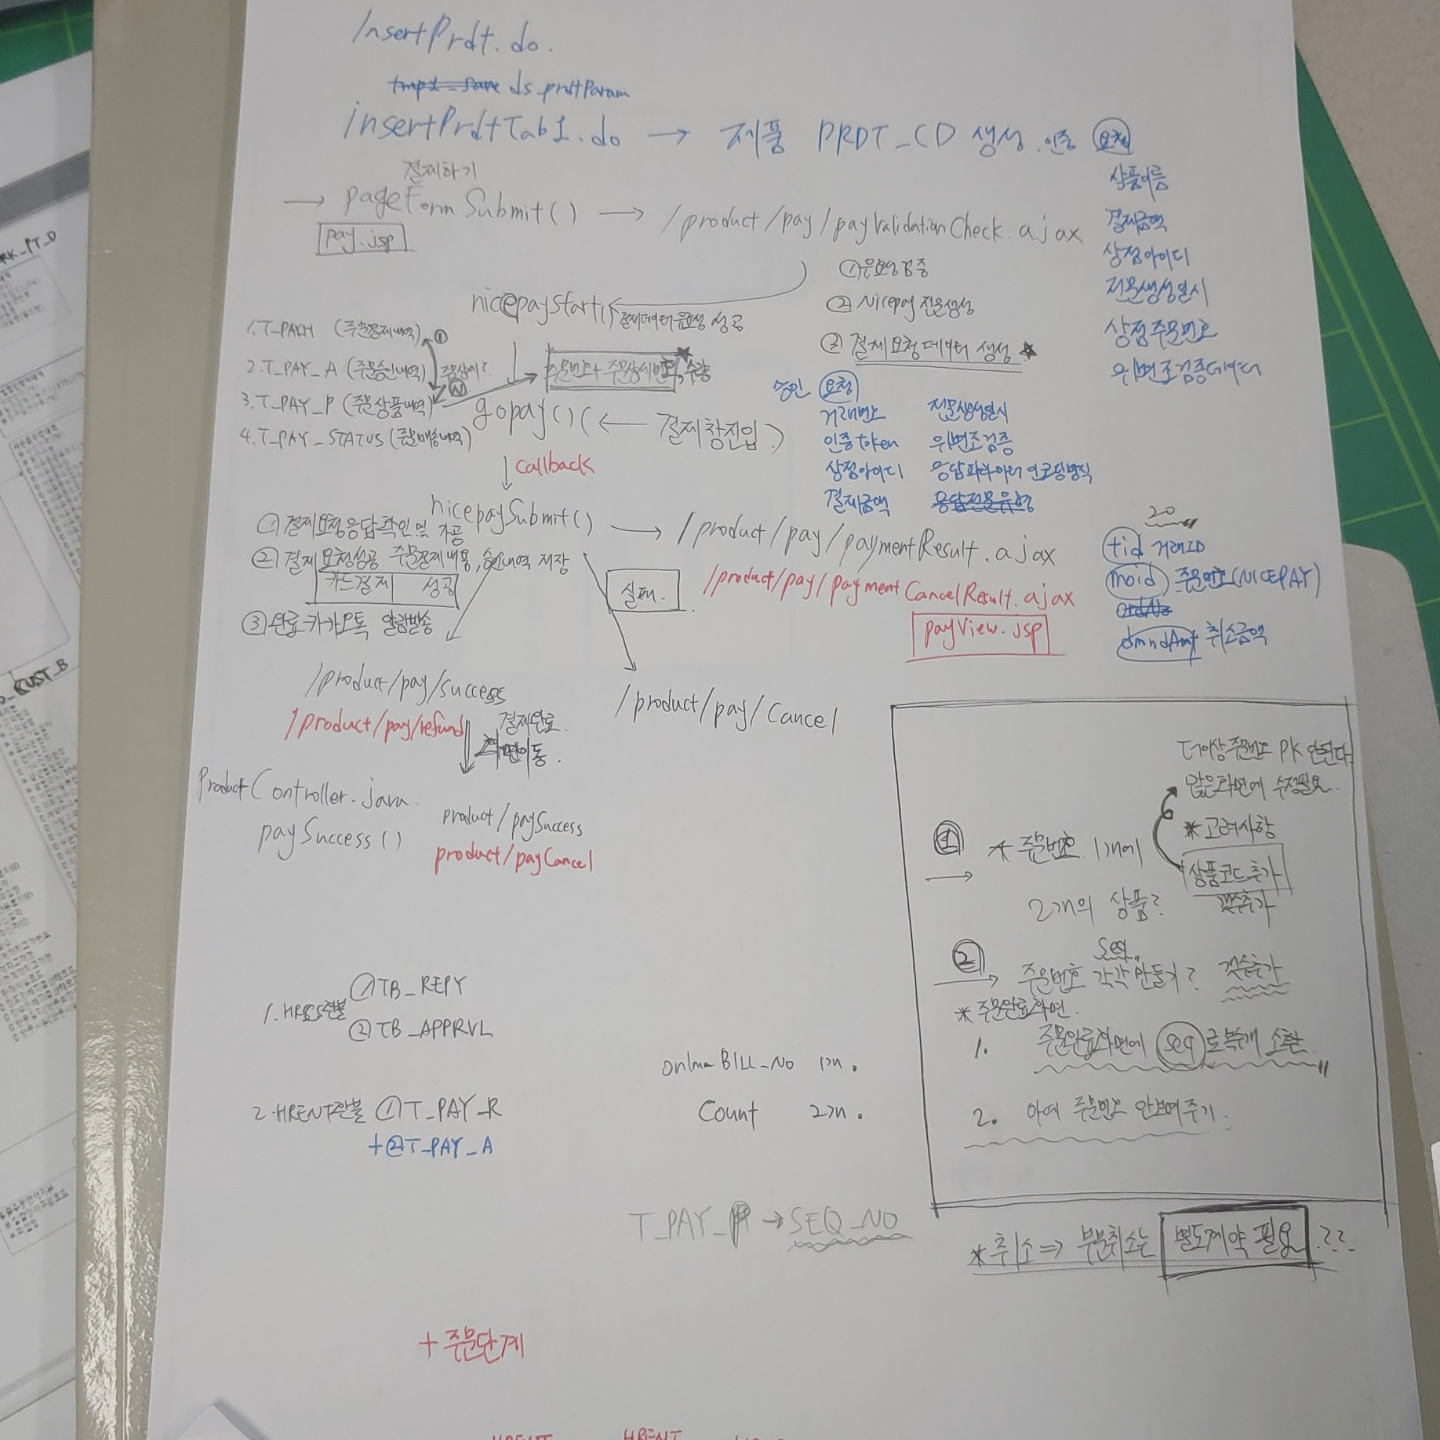 InsertPrdt.do.
ds_prdtParam
insertPrdtTab1.do → 제품 PRDT_CD 생성. 인증 요청
상품이름
결제금액
상점아이디
전문생성일시
상점주문번호
위변조검증데이터
결제하기
→ pageFormSubmit() → /product/pay/payValidationCheck.ajax
pay.jsp
① 유효성 검증
② Nicepay 전문생성
③ 결제 요청 데이터 생성 ★
nicepayStart()
결제데이터 유효성 성공
1. T_PAY_M (주문결제내역)
2. T_PAY_A (주문승인내역)
3. T_PAY_P (주문상품내역)
4. T_PAY_STATUS (주문배송내역)
①
N
주문번호+주문상세번호, 수량
승인 요청
거래번호 전문생성일시
인증 token 위변조검증
상점아이디 응답파라미터 인코딩방식
결제금액 응답전문유형
goPay() ( ← 결제창진입 )
callback
nicepaySubmit() → /product/pay/paymentResult.ajax
① 결제요청응답확인 및 가공
② 결제 요청성공 주문결제내용, 승인내역 저장
카드결제 성공
③ 완료 카카오톡 알람발송
실패.
/product/pay/paymentCancelResult.ajax
payView.jsp
20
tid 거래ID
moid 주문번호(NICEPAY)
dmndAmt 취소금액
/product/pay/success
/product/pay/refund
결제완료
화면이동.
/product/pay/Cancel
ProductController.java.
paySuccess()
product/paySuccess
product/payCancel
더이상 주문번호 PK 안된다.
많은화면에 수정필요.
* 고려사항
① → * 주문번호 1개에
2개의 상품?
상품코드추가
갯수추가
seq
② → 주문번호 각각 만들기? 갯수추가
* 주문완료화면.
1. 주문완료화면에 seq로 묶개 소환
2. 아예 주문번호 안보여주기.
1. HRCS환불 ① TB_REPY
② TB_APPRVL
2. HRENT환불 ① T_PAY_R
+② T_PAY_A
BILL_NO 1개.
Count 2개.
T_PAY_P → SEQ_NO
* 취소 ⇒ 부분취소는 별도계약 필요.???
+ 주문단계
HRENT HRENT